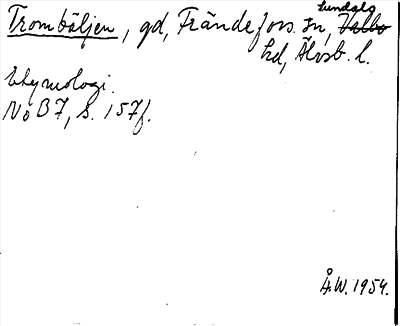 Sundals
Trombäljen, gd, Frändefors. sn, Valbo
hd, Älvsb. l.
Etymologi.
NoB 7, s. 157f.
Å.W. 1954.